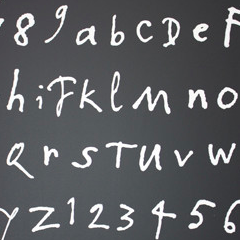 8 9 a b c D e F
h i J k l M n o
Q r s T u v w
y z 1 2 3 4 5 6